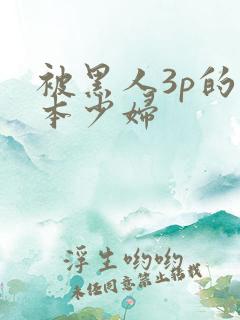 被黑人3p的
本少婦
浮生哟哟
未经同意禁止转载